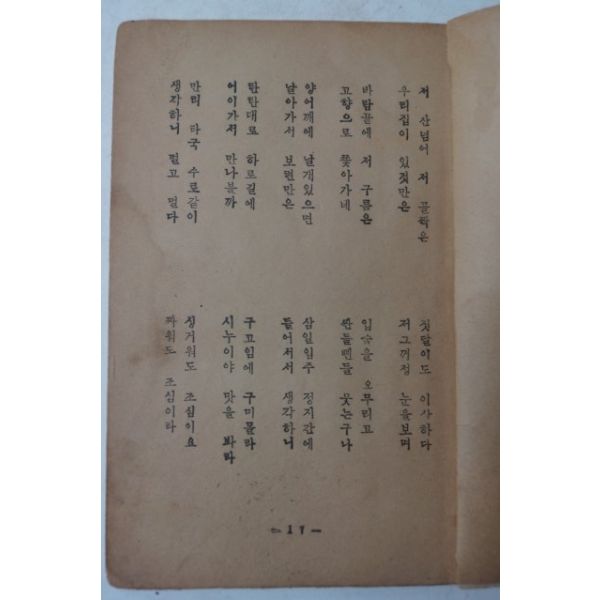 저 산넘어 저 골짝은
우리집이 있것만은
바람끝에 저 구름은
고향으로 쫓아가네
양어깨에 날개있으면
날아가서 보련만은
한한대로 하로길에
어이가져 만나볼까
만리 타국 수로같이
생각하니 멀고 멀다
첫달이도 이사하다
저그꺼정 눈을보며
입술을 오무리고
싼들뺀들 웃는구나
삼일입주 정지간에
들어서서 생각하니
구고임에 구미몰라
시누이야 맛을 봐라
싱거워도 조심이요
짜워도 조심이라
— 1 7 —